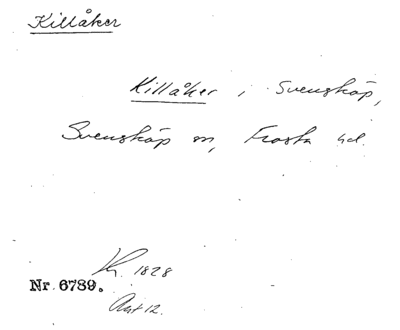 Killåker
Killåker i Svensköp,
Svensköp sn, Frosta hd.
Kr. 1828
Nr. 6789.
Akt 12.